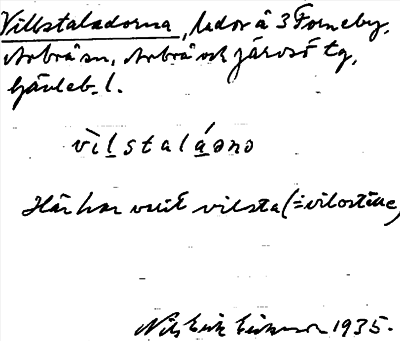 Villstaladorna, lador å 3 Forneby,
Arbrå sn, Arbrå och Järvsö tg,
Gävleb. l.
vìlstaláɷnɷ
Här har varit vilsta (= viloställe)
Nils Erik Eriksson 1935.